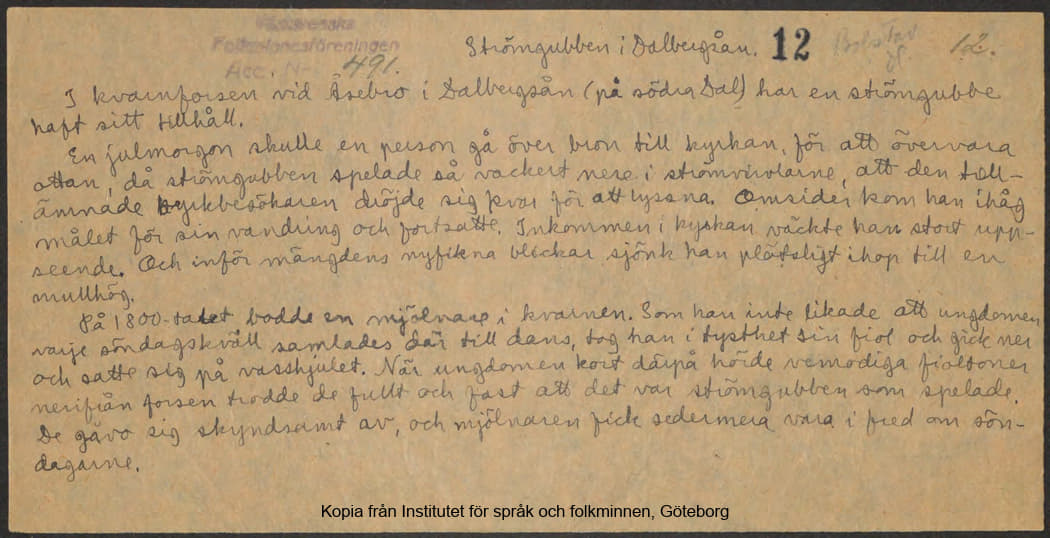 Västsvenska
Folkminnesföreningen
Acc. Nr 491.
Strömgubben i Dalbergsån. 12 12.
I kvarnforsen vid Åsebro i Dalbergsån (på södra Dal) har en strömgubbe
haft sitt tillhåll.
En julmorgon skulle en person gå över bron till kyrkan, för att övervara
ottan, då strömgubben spelade så vackert nere i strömvirvlarne, att den till-
ämnade kyrkbesökaren dröjde sig kvar för att lyssna. Omsider kom han ihåg
målet för sin vandring och fortsatte. Inkommen i kyrkan väckte han stort upp-
seende. Och inför mängdens nyfikna blickar sjönk han plötsligt ihop till en
mullhög.
På 1800-talet bodde en mjölnare i kvarnen. Som han inte likade att ungdomen
varje söndagskväll samlades där till dans, tog han i tysthet sin fiol och gick ner
och satte sig på vasshjulet. När ungdomen kort därpå hörde vemodiga fioltoner
nerifrån forsen trodde de fullt och fast att det var strömgubben som spelade.
De gåvo sig skyndsamt av, och mjölnaren fick sedermera vara i fred om sön-
dagarne.
Kopia från Institutet för språk och folkminnen, Göteborg